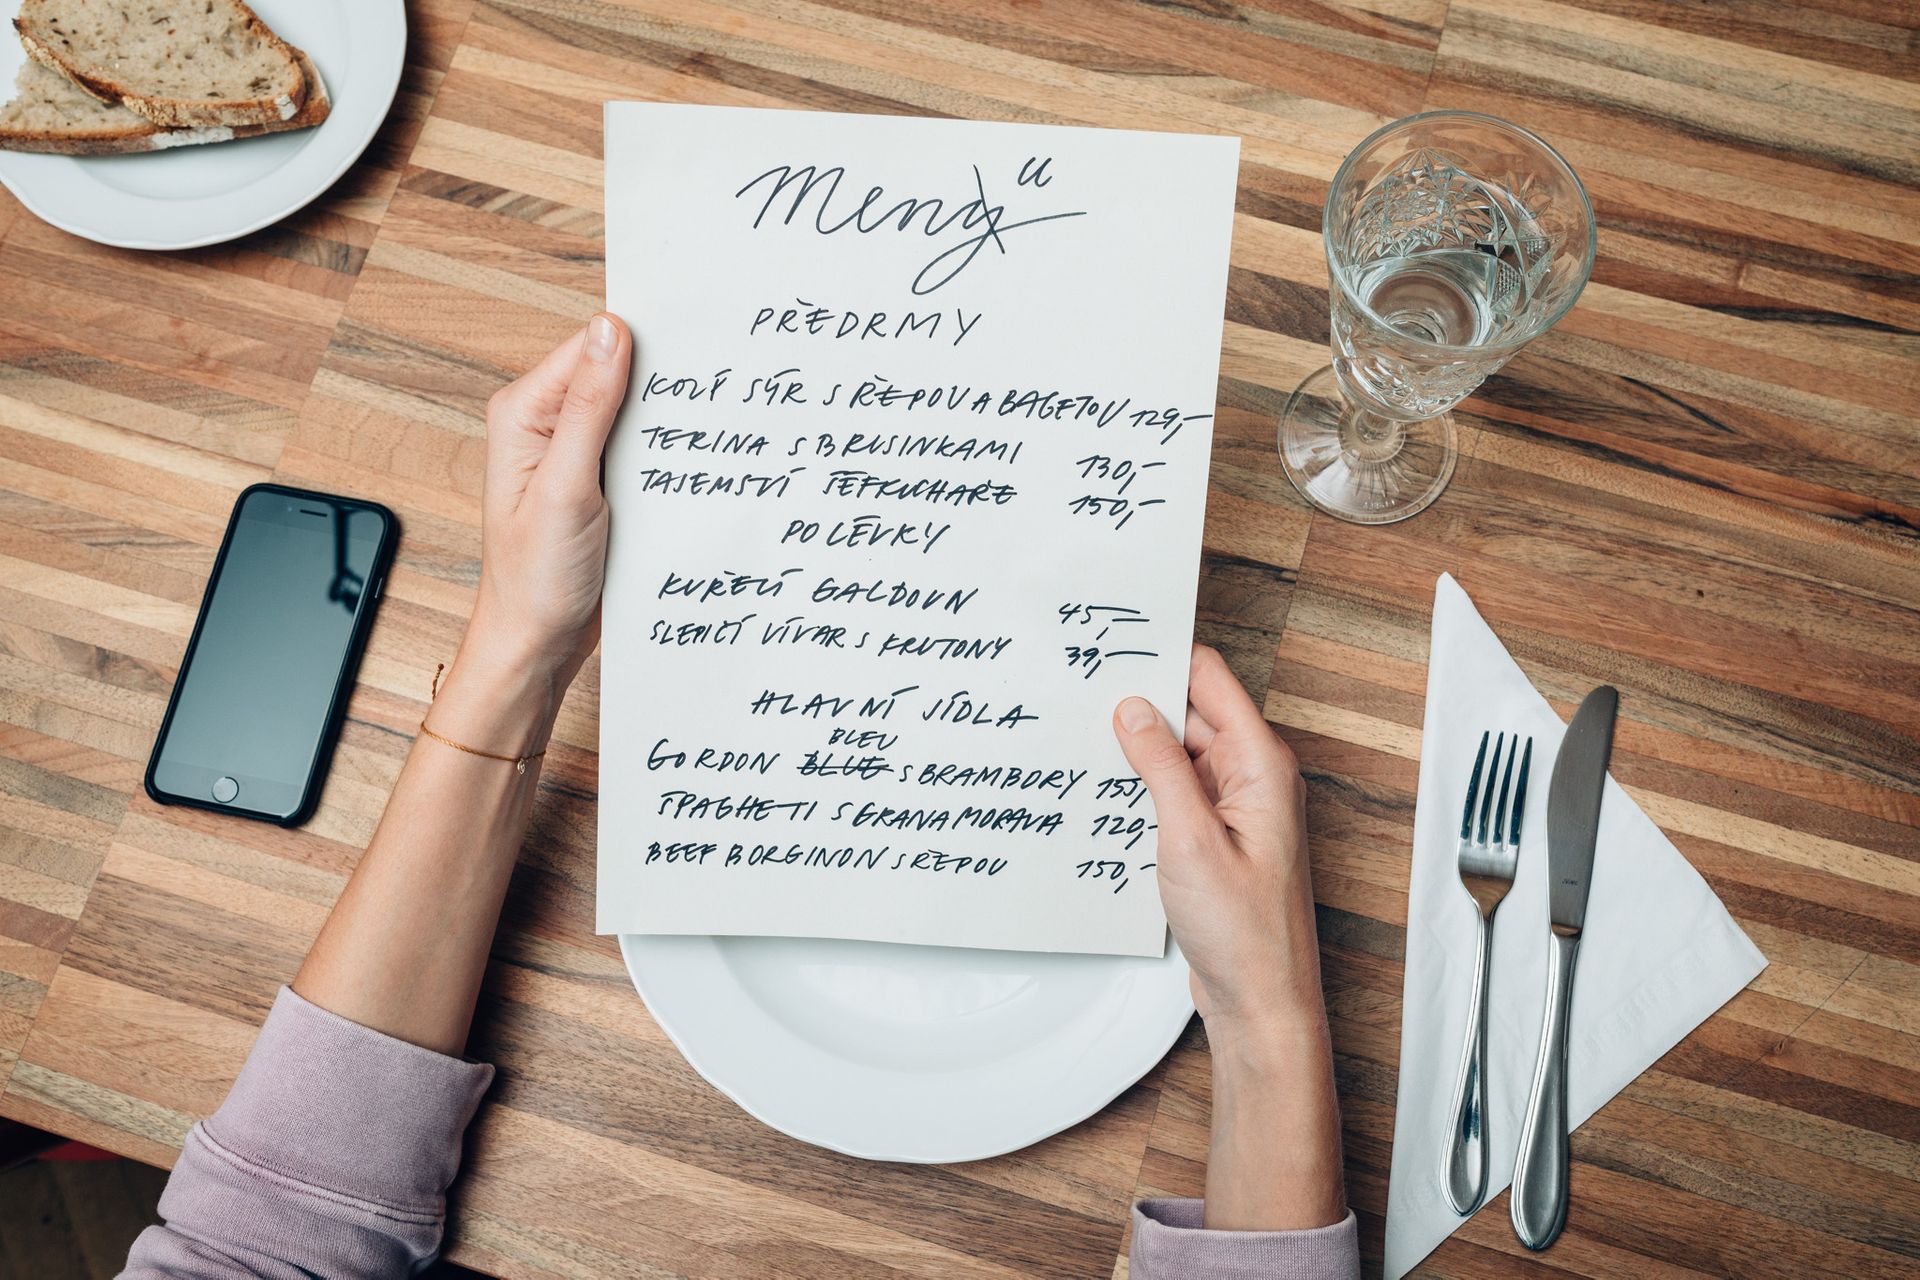 Menu
PŘEDRMY
KOZÝ SÝR S ŘEPOU A BAGETOU 129,-
TERINA S BRUSINKAMI 130,-
TAJEMSTVÍ ŠÉFKUCHAŘE 150,-
POLÉVKY
KUŘECÍ GALDOUN 45,-
SLEPIČÍ VÍVAR S KRUTONY 39,-
HLAVNÍ JÍDLA
BLEU
GORDON BLUE S BRAMBORY 155,
ŠPAGHETI S GRANA MORAVA 120,-
BEEF BORGINON S ŘEPOU 150,-